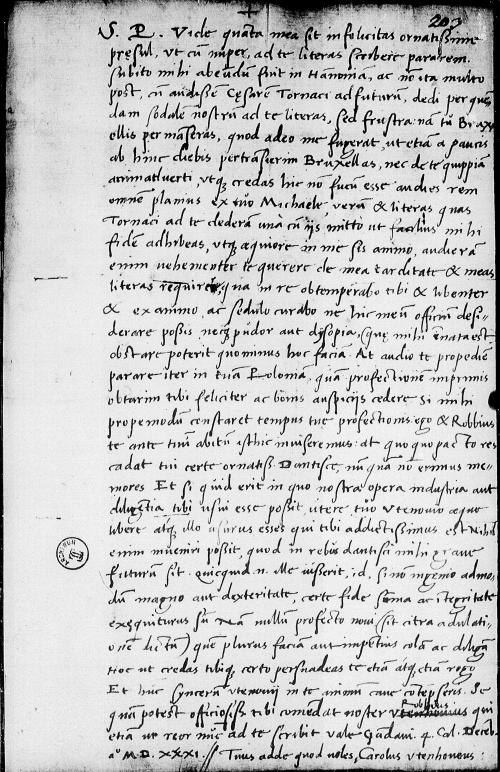 203
S. P. Vide quanta mea sit infoelicitas ornatissime
pręsul, ut cũ nuper, ad te literas scribere pararem
subito mihi abeũdũ fuit in Hanonia, ac nõ ita multo
post, cũ audissem Cęsarẽ Tornaci adfuturũ, dedi per quẽ
dam sodalẽ nostrũ ad te literas, sed frustra: nã tũ Brux
ellis permãseras, quod adeo me fugerat, ut etiã a paucis
ab hinc diebis pertrãsierim Bruxellas, nec de te quippiã
animadverti, utq credas hic nõ fucũ esse audies rem
omnẽ planius ex tuo Michaele, verũ & literas quas
Tornaci ad te dederã una cũ ijs mitto ut facilius mihi
fidẽ adhibeas, utq ęquiore in me sis animo, audierã
enim vehementer te querere de mea tarditate & meas
literas requirere, qua in re obtemperabo tibi & libenter
& ex animo, ac sedulo curabo ne hic meũ officiũ desi-
derare possis neq pudor aut dysopia, (quę mihi innata est
obstare poterit quominus hoc faciã. At audio te propediẽ
parare iter in tuã Poloniã, quã profectionẽ imprimis
obtarim tibi feliciter ac bonis auspicijs cedere si mihi
propemodũ constaret tempus tuę profectionis ego & Robbius
te ante tuũ abitũ isthic inviseremus: at quoquo pacto res
cadat tui certe ornatiss. Dantisce, nũquã nõ erimus me-
mores Et si quid erit in quo nostra opera industria aut
diligẽtia tibi usui esse possit, utere tuo Utenovio ęque
libere atq illo usurus esses qui tibi addictissimus est Nihil
enim inveniri possit, quod in rebus dantisci mihi grave
futurũ sit. quicquid n. ille iusserit, id, si nõ ingenio admo-
dũ magno aut dexteritate, certe fide summa ac itegritate
exequituras sũ Nã nullũ profecto novi (sit citra adulati-
onẽ dictũ) quẽ pluris faciã aut impensius colã ac diligã
Hoc ut credas tibiq, certo persuadeas te etiã atq etiã rogo
Et huc syncerũ utenovij in te animũ cave cõtẽpseris. Se
quãm potest officiosiss. tibi comẽdat noster Robbius qui
etiã ut reor nũc ad te scribit vale Gadavi. 4. Cal. Decẽb.
aº M.D.XXXI. Tuus adde quod voles, Carolus utenhovus.